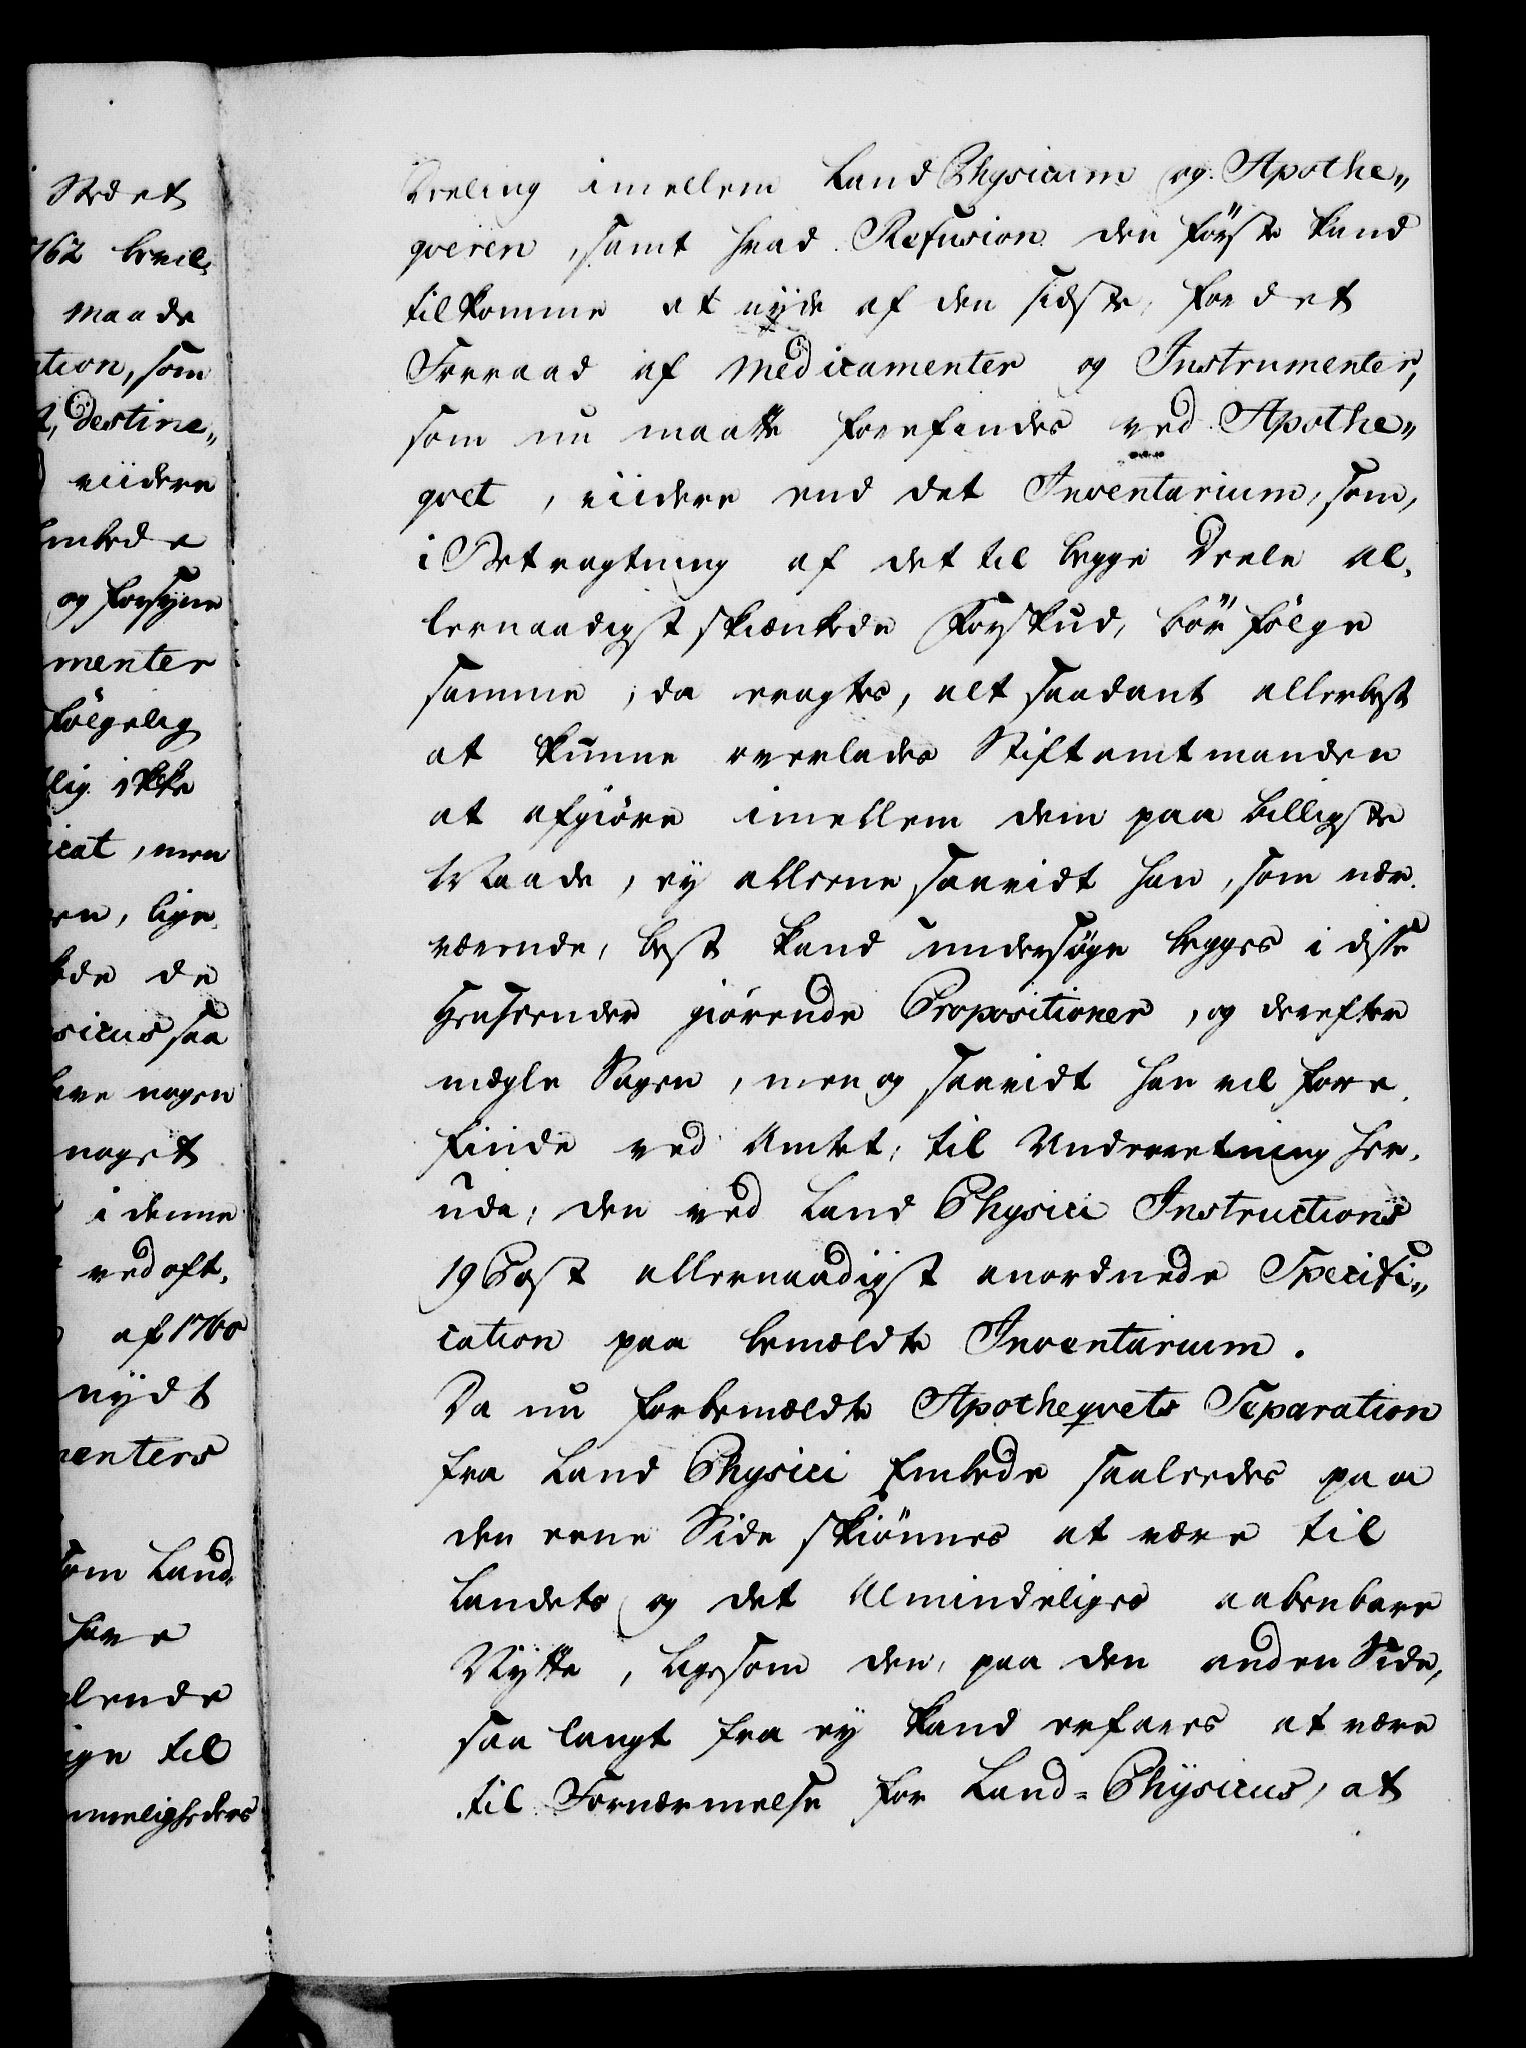 Stedet
762 bevil,
Maade
ation, som
destine,,
viidere
Embede
og forsyne
menter
følgelig
lig ikke
icat, men
en, lige
de de
sicus saa
have nogen
noget
i denne
ved oft,
af 1760
nydt
menters
som Land
have
lende
ige til
mmeligheders
Deeling imellem Land Physicum og Apothe„
qveren, samt hvad Refusion den første kand
tilkomme at nyde af den sidste, for det
Forraad af Medicamenter og Instrumenter,
som nu maatte forefindes ved Apothe„
qvet, viidere end det Inventarium, som,
i Betragtning af det til begge Deele al,
lernaadigst skiænkede Forskud, bør følge
samme, da eragtes, alt saadant allerbest
at kunne overlades Stiftamtmanden
at afgiøre imellem dem paa billigste
Maade, ey alleene saavidt han, som nær,
værende, best kand undersøge begges i disse
Henseender giørende Propositioner, og derefter
mægle Sagen, men og saavidt han vil fore,
finde ved Amtet, til Underretning her,
ude, den ved Land Physici Instructions
19 Post allernaadigst anordnede Specifi„
cation paa bemældte Inventarium.
Da nu forbemældte Apotheqvets Separation
fra Land Physici Embede saaledes paa
den eene Side skiønnes at være til
Landets og det Almindeliges aabenbare
Nytte, ligesom den, paa den anden Side,
saa langt fra ey kand erfares at være
til Fornærmelse for Land-Physicus, at